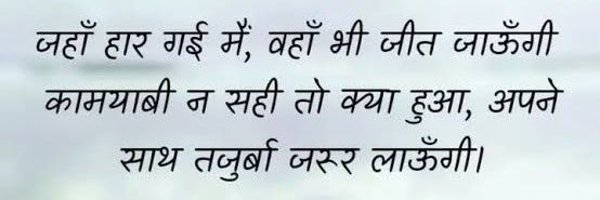 जहाँ हार गई मैं, वहाँ भी जीत जाऊँगी
कामयाबी न सही तो क्या हुआ, अपने
साथ तजुर्बा जरूर लाऊँगी।